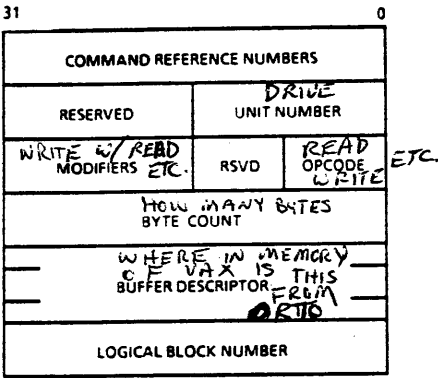 31 0
COMMAND REFERENCE NUMBERS
DRIVE
RESERVED UNIT NUMBER
WRITE W/ READ READ
MODIFIERS ETC. RSVD OPCODE ETC.
WRITE
HOW MANY BYTES
BYTE COUNT
WHERE IN MEMORY
OF VAX IS THIS
BUFFER DESCRIPTOR FROM
OR TO
LOGICAL BLOCK NUMBER